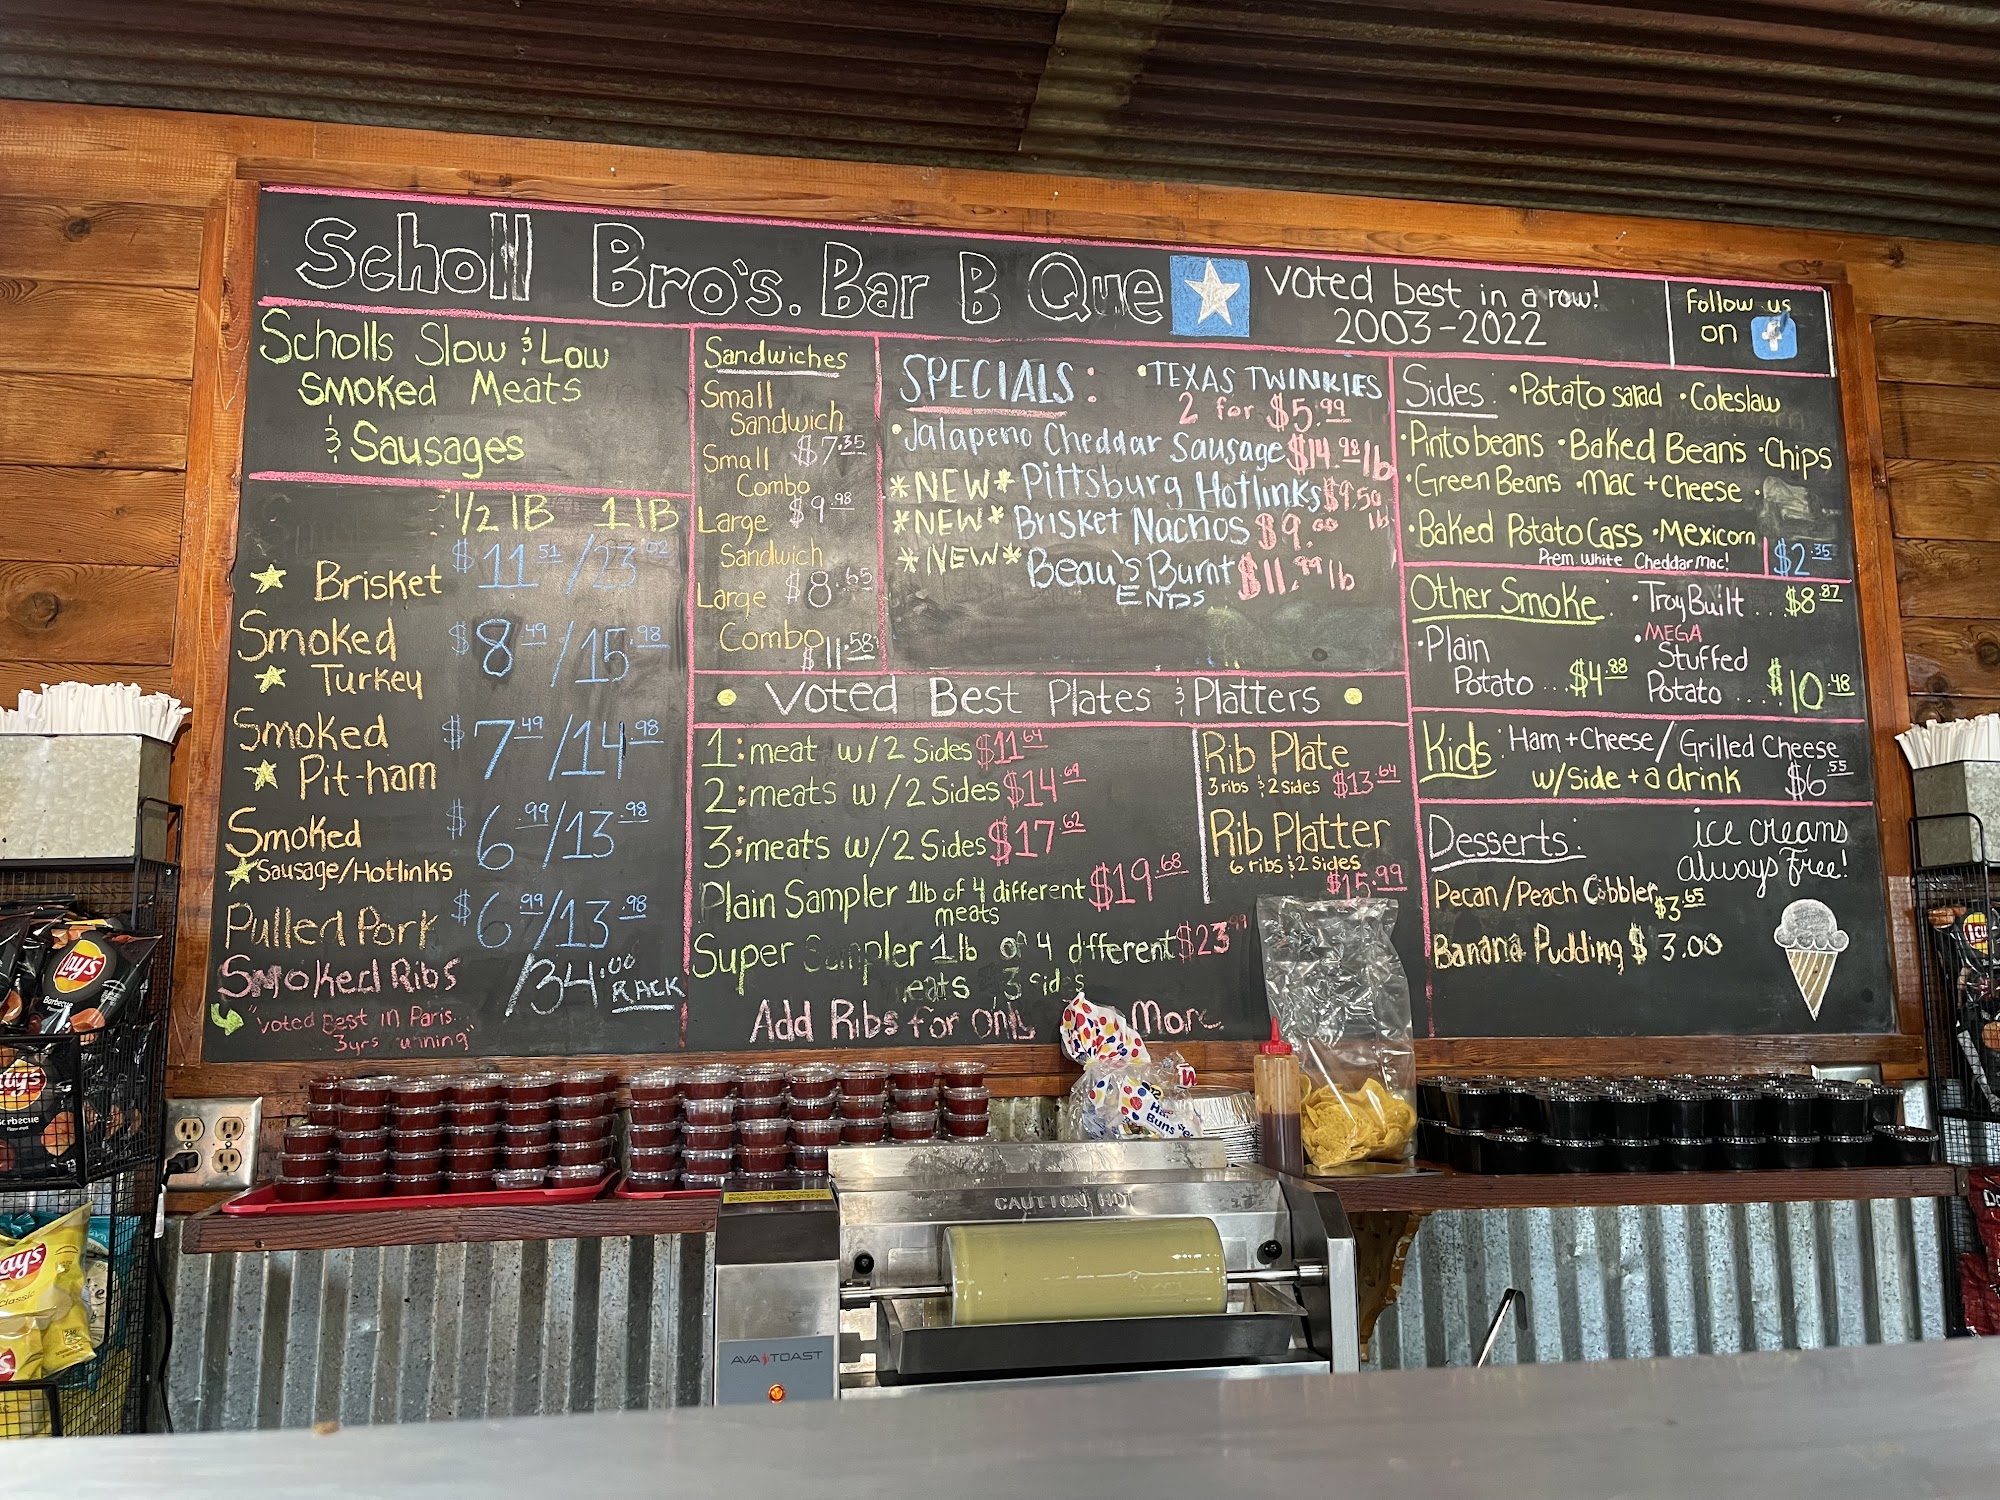 Scholl Bro's. Bar B Que
Voted best in a row!
2003-2022
Follow us
on f
Scholls Slow & Low
Smoked Meats
& Sausages
1/2 lB 1 lB
Brisket $11.51/23.02
Smoked
Turkey $8.49/15.98
Smoked
Pit-ham $7.49/14.98
Smoked
Sausage/Hotlinks $6.99/13.98
Pulled Pork $6.99/13.98
Smoked Ribs /34.00
RACK
"Voted Best in Paris
3yrs
Sandwiches
Small
Sandwich
$7.35
Small
Combo
$9.98
Large
Sandwich
$8.65
Large
Combo
$11.58
SPECIALS: •TEXAS TWINKIES
2 for $5.99
•Jalapeno Cheddar Sausage $14.98 lb
*NEW* Pittsburg Hotlinks $9.50
lb
*NEW* Brisket Nachos $9.00
*NEW* Beau's Burnt $11.99 lb
ENDS
• Voted Best Plates & Platters •
1: meat w/2 Sides $11.64
2: meats w/2 Sides $14.69
3: meats w/2 Sides $17.62
Plain Sampler 1lb of 4 different $19.68
meats
Super Sampler 1 lb of 4 different $23
3
Add Ribs for More
Rib Plate
3 ribs & 2 sides $13.64
Rib Platter
6 ribs & 2 Sides
$15.99
Sides: •Potato salad •Coleslaw
•Pinto beans •Baked Beans •Chips
•Green Beans •Mac + Cheese •
•Baked Potato Cass •Mexicorn
Prem. White Cheddar Mac! $2.35
Other Smoke: •Troy Built ... $8.87
•Plain
Potato ... $4.88
•MEGA
Stuffed
Potato .... $10.48
Kids: Ham + Cheese/Grilled Cheese
w/Side + a drink $6.55
Desserts:
ice creams
always Free!
Pecan/Peach Cobbler $3.65
Banana Pudding $3.00
Lay's
Barbecue
Lay's
Barbecue
Lay's
Classic
Buns
CAUTION HOT
AVATOAST